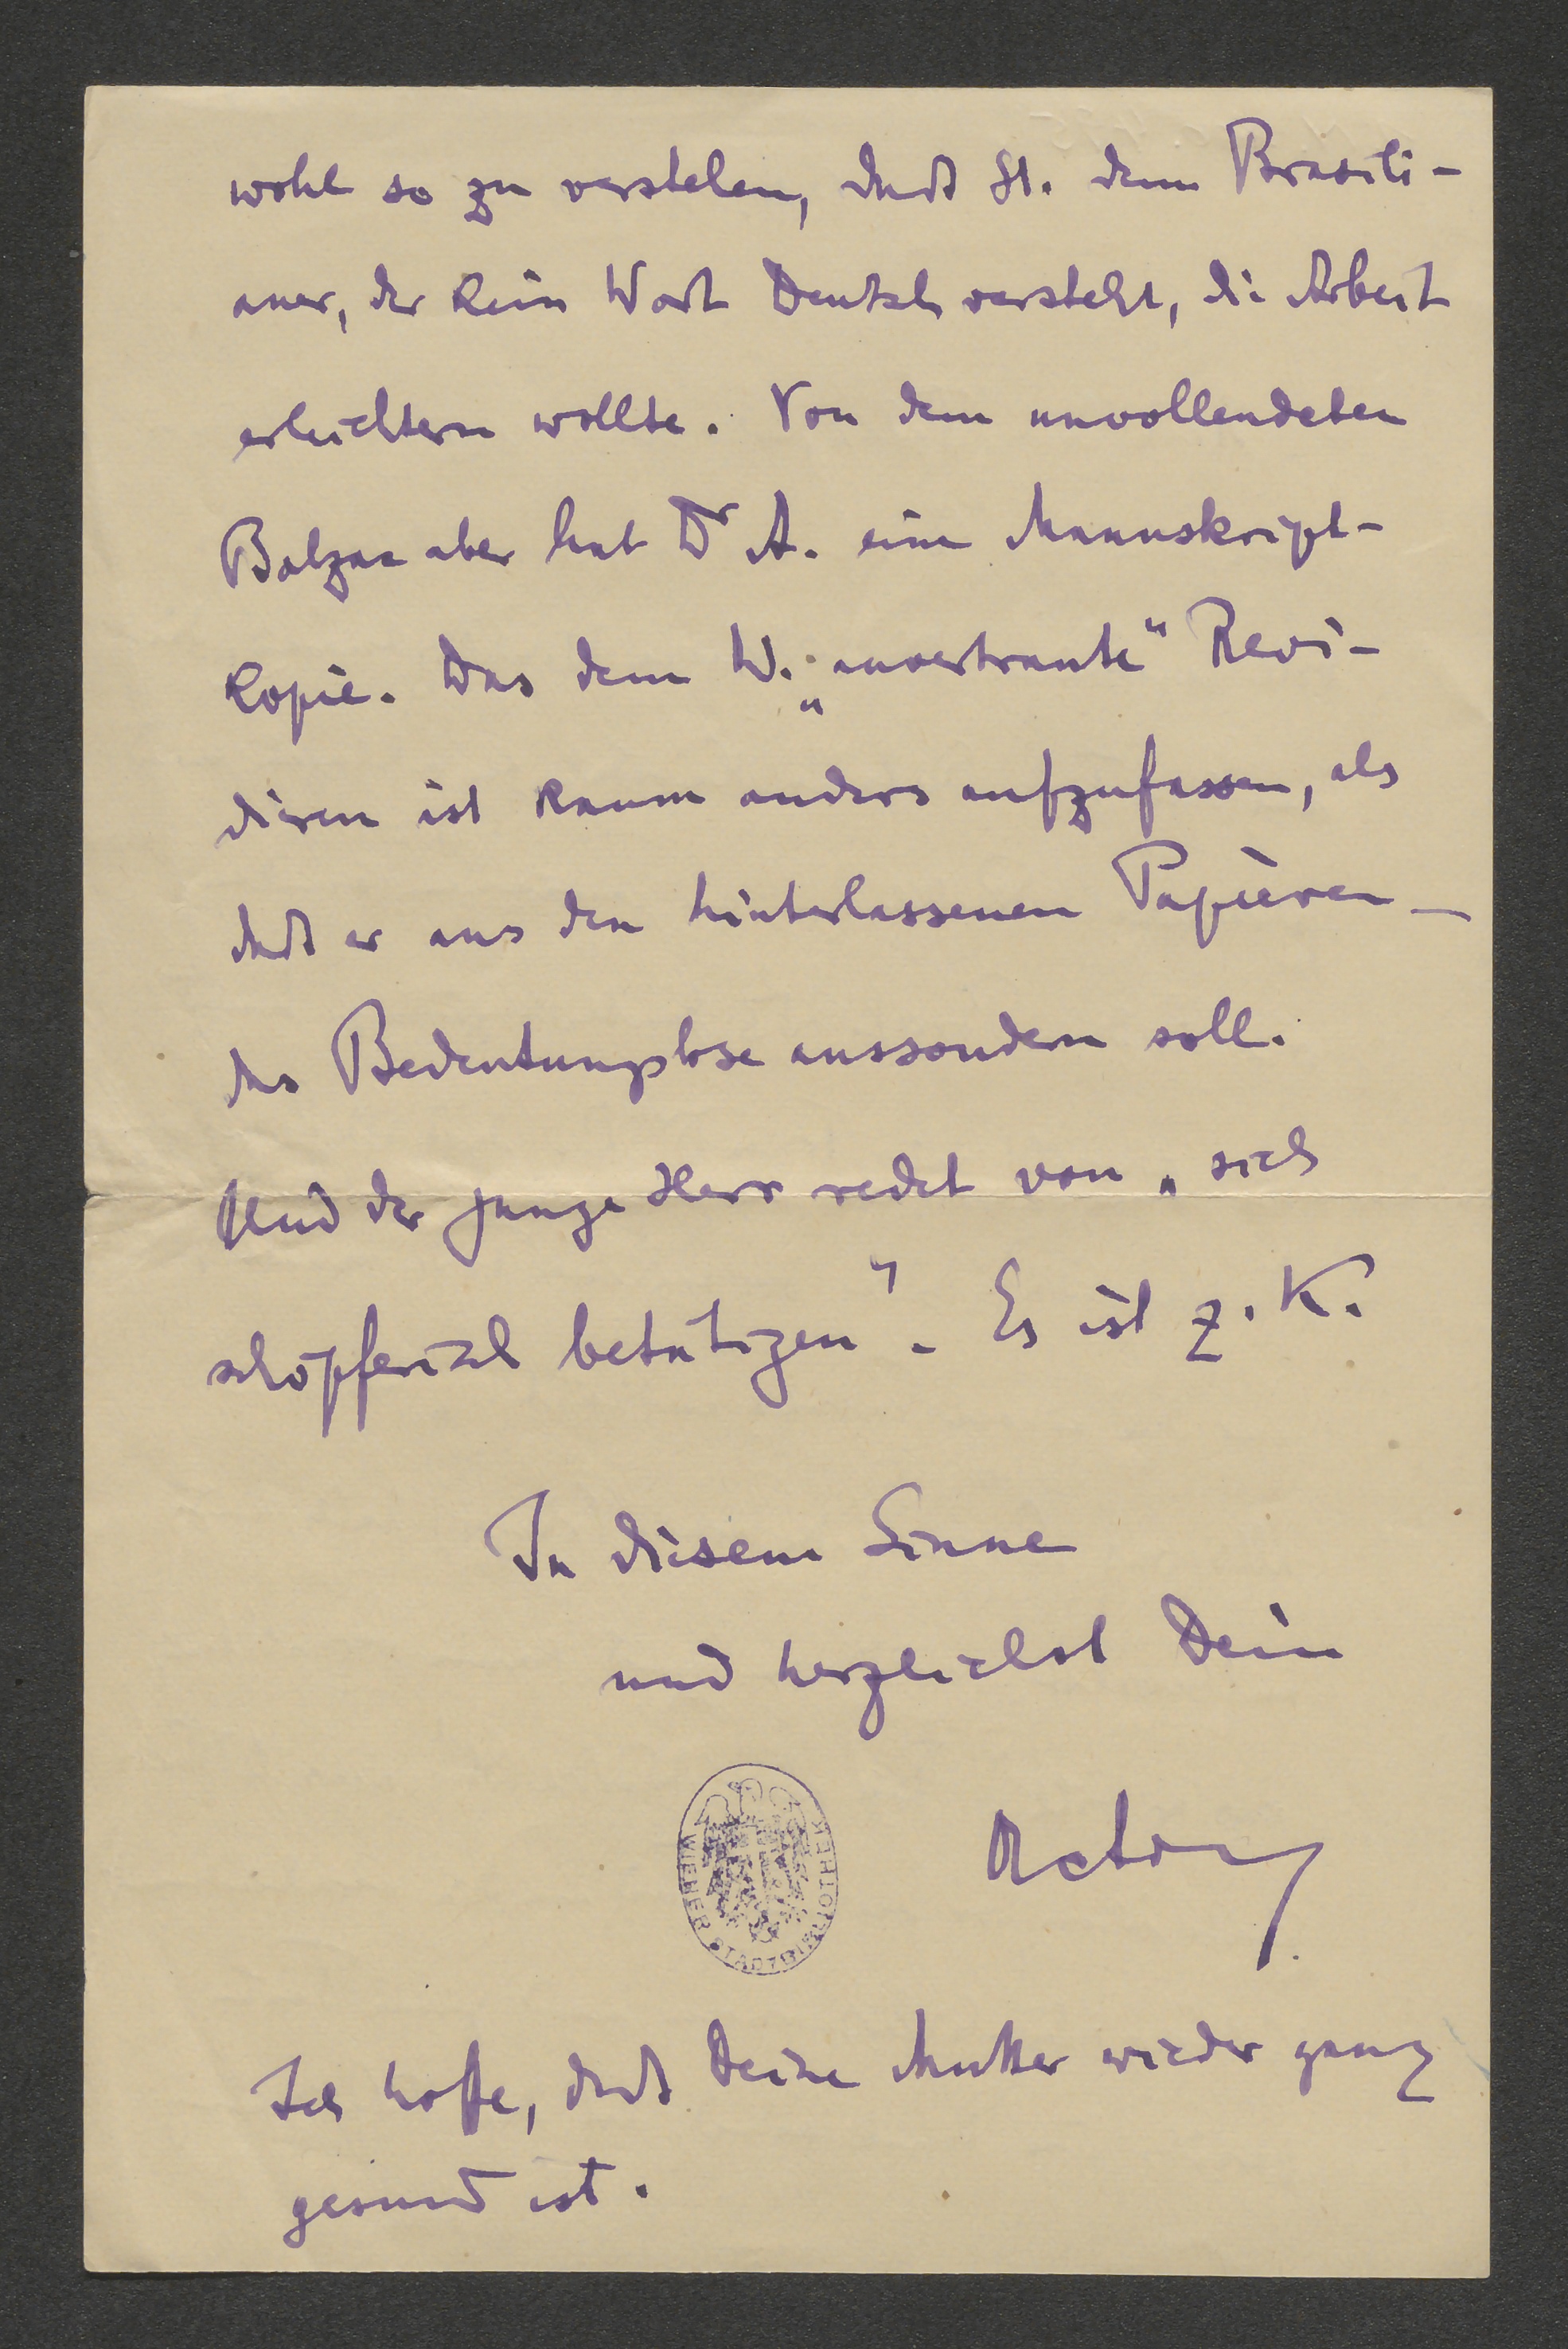 wohl so zu verstehen, daß St. dem Brasili-
aner, der kein Wort Deutsch versteht, die Arbeit
erleichtern wollte. Von dem unvollendeten
Balzac aber hat Dr A. eine Manuskript-
kopie. Das dem W. „anvertraute" Revi-
dieren ist kaum anders aufzufassen, als
daß er aus den hinterlassenen Papieren
das Bedeutungslose aussondern soll.
Und der junge Herr redet von „sich
schöpferisch betätigen". Es ist z. K.
In diesem Sinne
und herzlichst Dein
Ich hoffe, daß Deine Mutter wieder ganz
gesund ist.
WIENER STADTBIBLIOTHEK